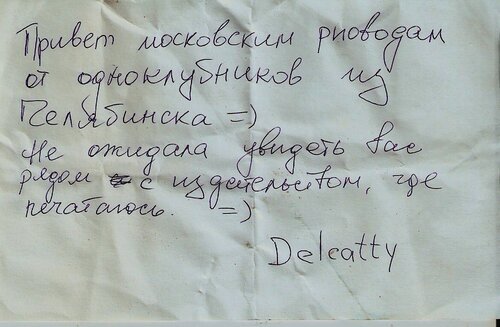 Привет московским риоводам
от одноклубников из
Челябинска =)
Не ожидала увидеть вас
рядом с издательством, где
печатаюсь. =)
Delcatty